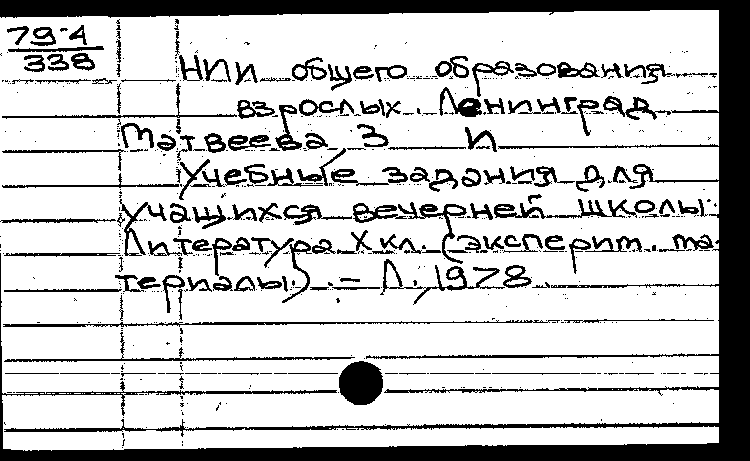 79-4
338
НИИ общего образования
взрослых. Ленинград
Матвеева З И
Учебные задания для
учащихся вечерней школы.
Литература X кл. (эксперим. ма-
териалы). – Л., 1978.